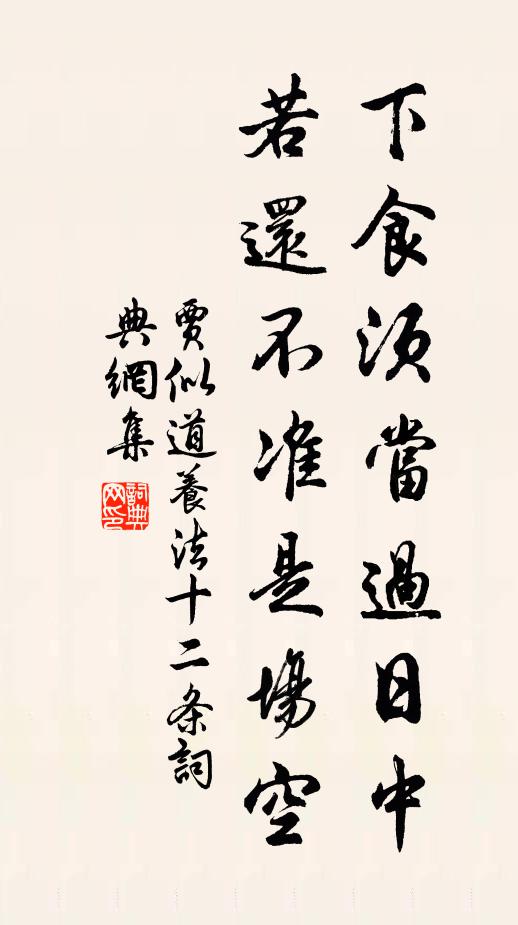 下食須當過日中
若還不準是場空
賈似道養法十二条詞
典網集
詞典
网印